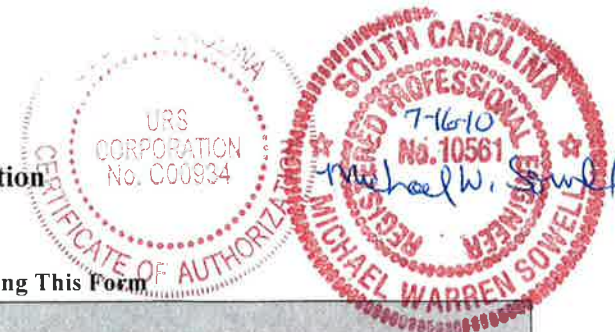 CAROLINA
URS
CORPORATION
No. C00934
CERTIFICATE OF AUTHORIZATION
SOUTH CAROLINA
REGISTERED PROFESSIONAL ENGINEER
7-16-10
No. 10561
Michael W. Sowell
MICHAEL WARREN SOWELL
tion
ing This Form